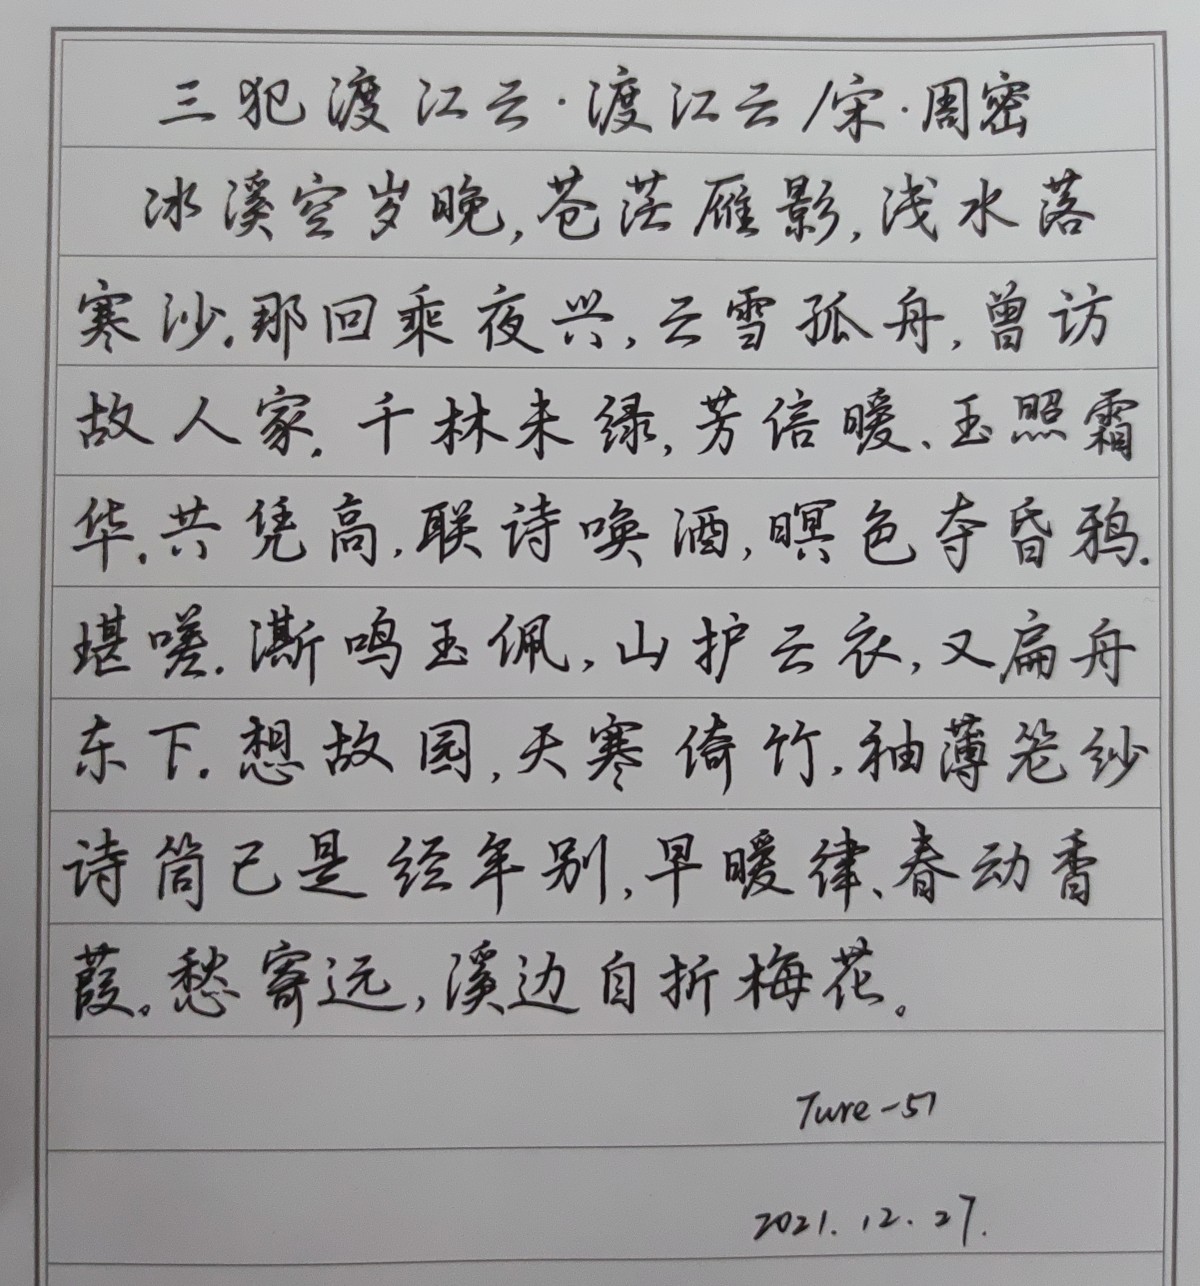 三犯渡江云·渡江云/宋·周密
冰溪空岁晚,苍茫雁影,浅水落
寒沙.那回乘夜兴,云雪孤舟,曾访
故人家.千林未绿,芳信暖、玉照霜
华.共凭高,联诗唤酒,暝色夺昏鸦.
堪嗟.澌鸣玉佩,山护云衣,又扁舟
东下.想故园,天寒倚竹,袖薄笼纱
诗筒已是经年别,早暖律、春动香
葭。愁寄远,溪边自折梅花。
Ture-51
2021.12.27.